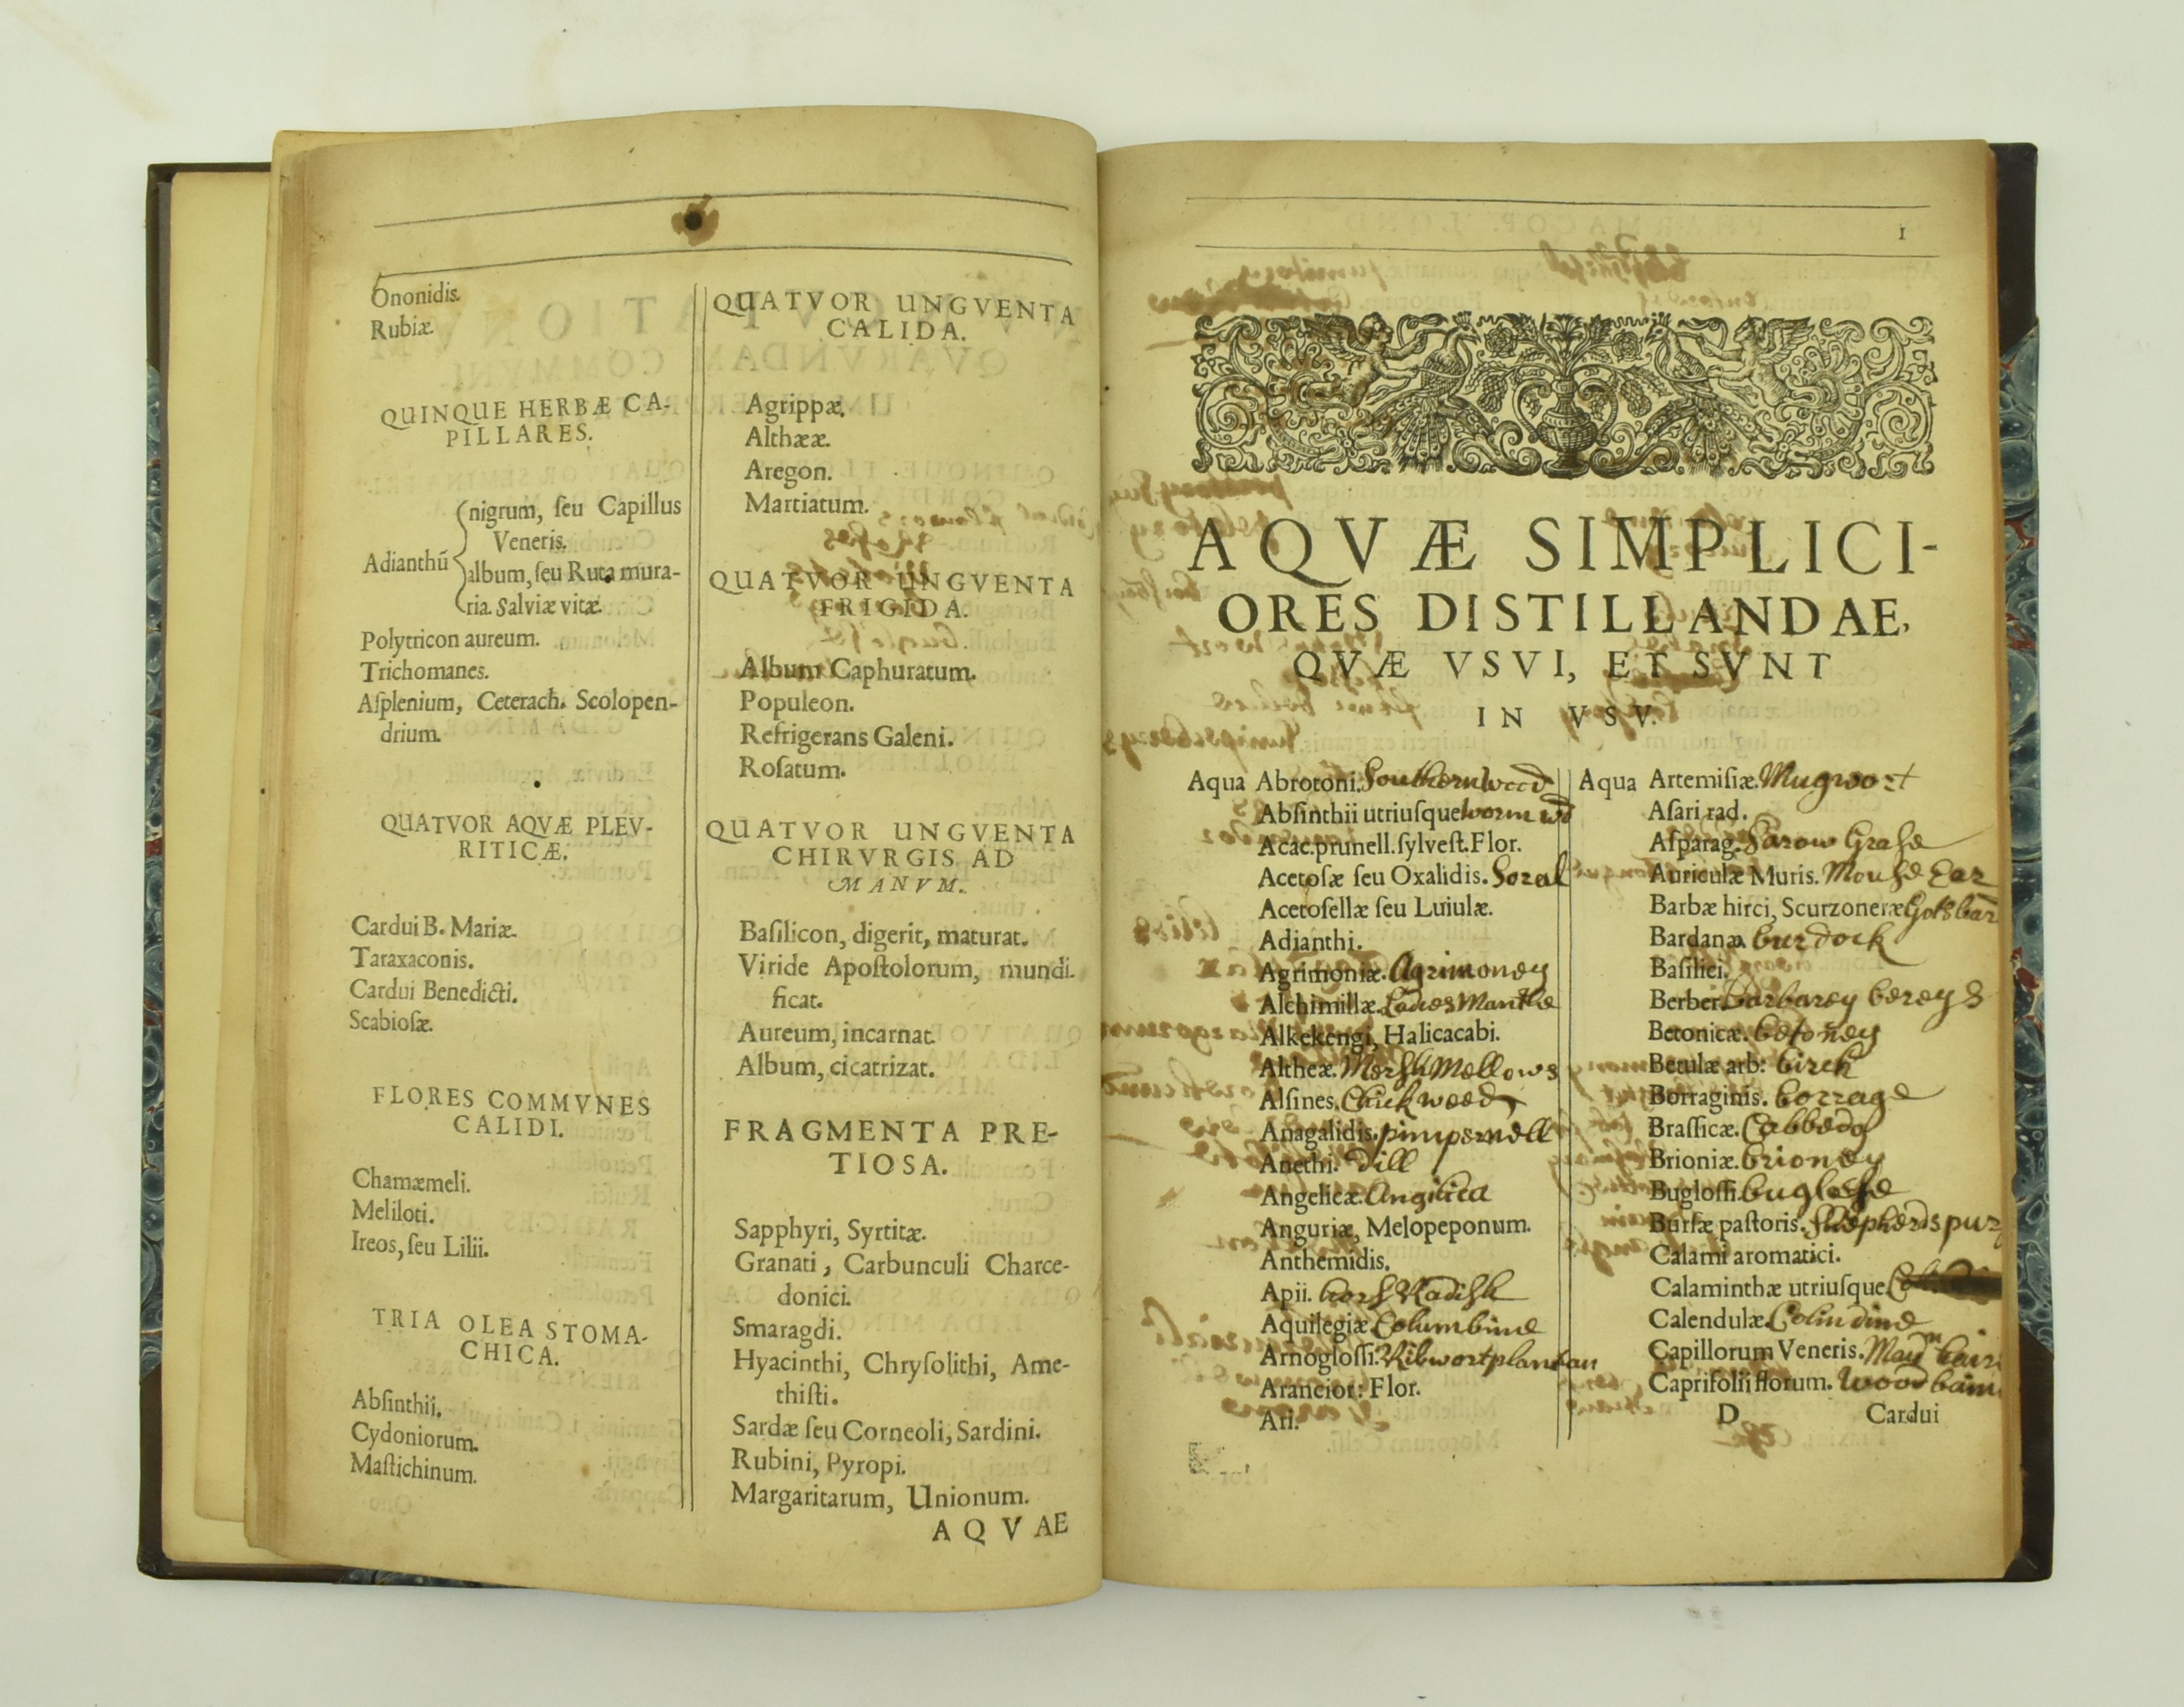 Ononidis.
Rubiæ.
QUINQUE HERBÆ CA-
PILLARES.
Adianthũ
nigrum, ſeu Capillus
Veneris.
album, ſeu Ruta mura-
ria. Salviæ vitæ.
Polytricon aureum.
Trichomanes.
Aſplenium, Ceterach. Scolopen-
drium.
QUATVOR AQVÆ PLEV-
RITICÆ.
Cardui B. Mariæ.
Taraxaconis.
Cardui Benedicti.
Scabioſæ.
FLORES COMMVNES
CALIDI.
Chamæmeli.
Meliloti.
Ireos, ſeu Lilii.
TRIA OLEA STOMA-
CHICA.
Abſinthii.
Cydoniorum.
Maſtichinum.
QUATVOR UNGVENTA
CALIDA.
Agrippæ.
Althææ.
Aregon.
Martiatum.
QUATVOR UNGVENTA
FRIGIDA.
Album Caphuratum.
Populeon.
Refrigerans Galeni.
Roſatum.
QUATVOR UNGVENTA
CHIRVRGIS AD
MANVM.
Baſilicon, digerit, maturat.
Viride Apoſtolorum, mundi-
ficat.
Aureum, incarnat.
Album, cicatrizat.
FRAGMENTA PRE-
TIOSA.
Sapphyri, Syrtitæ.
Granati, Carbunculi Charce-
donici.
Smaragdi.
Hyacinthi, Chryſolithi, Ame-
thiſti.
Sardæ ſeu Corneoli, Sardini.
Rubini, Pyropi.
Margaritarum, Unionum.
AQVAE
1
AQVÆ SIMPLICI-
ORES DISTILLANDAE,
QVÆ VSVI, ET SVNT
IN VSV.
Aqua Abrotoni. Southernwood
Abſinthii utriuſque worm wd
Acac. prunell. ſylveſt. Flor.
Acetoſæ ſeu Oxalidis. Soral
Acetoſellæ ſeu Luiulæ.
Adianthi.
Agrimoniæ. Agrimoney
Alchimillæ. Ladies Mantle
Alkekengi, Halicacabi.
Altheæ. Mersh Mellows
Alſines. Chickweed
Anagalidis. pimpernell
Anethi. Dill
Angelicæ. Angilica
Anguriæ, Melopeponum.
Anthemidis.
Apii. hors Radish
Aquilegiæ. Columbine
Arnogloſſi. Ribwort plantan
Arancior: Flor.
Ari.
Aqua Artemiſiæ. Mugwort
Aſari rad.
Aſparag. Sarow Graſe
Auriculæ Muris. Mouse Ear
Barbæ hirci, Scurzoneræ Gotsbar
Bardanæ. burdock
Baſilici.
Berber. Barbarey bereys
Betonicæ. betoney
Betulæ arb: birch
Borraginis. borrage
Braſſicæ. Cabbedg
Brioniæ. brioney
Bugloſſi. buglose
Burſæ paſtoris. Shepherds purs
Calami aromatici.
Calaminthæ utriuſque
Calendulæ. Colindine
Capillorum Veneris. Mayn hair
Caprifolii florum. Woodbain
D Cardui